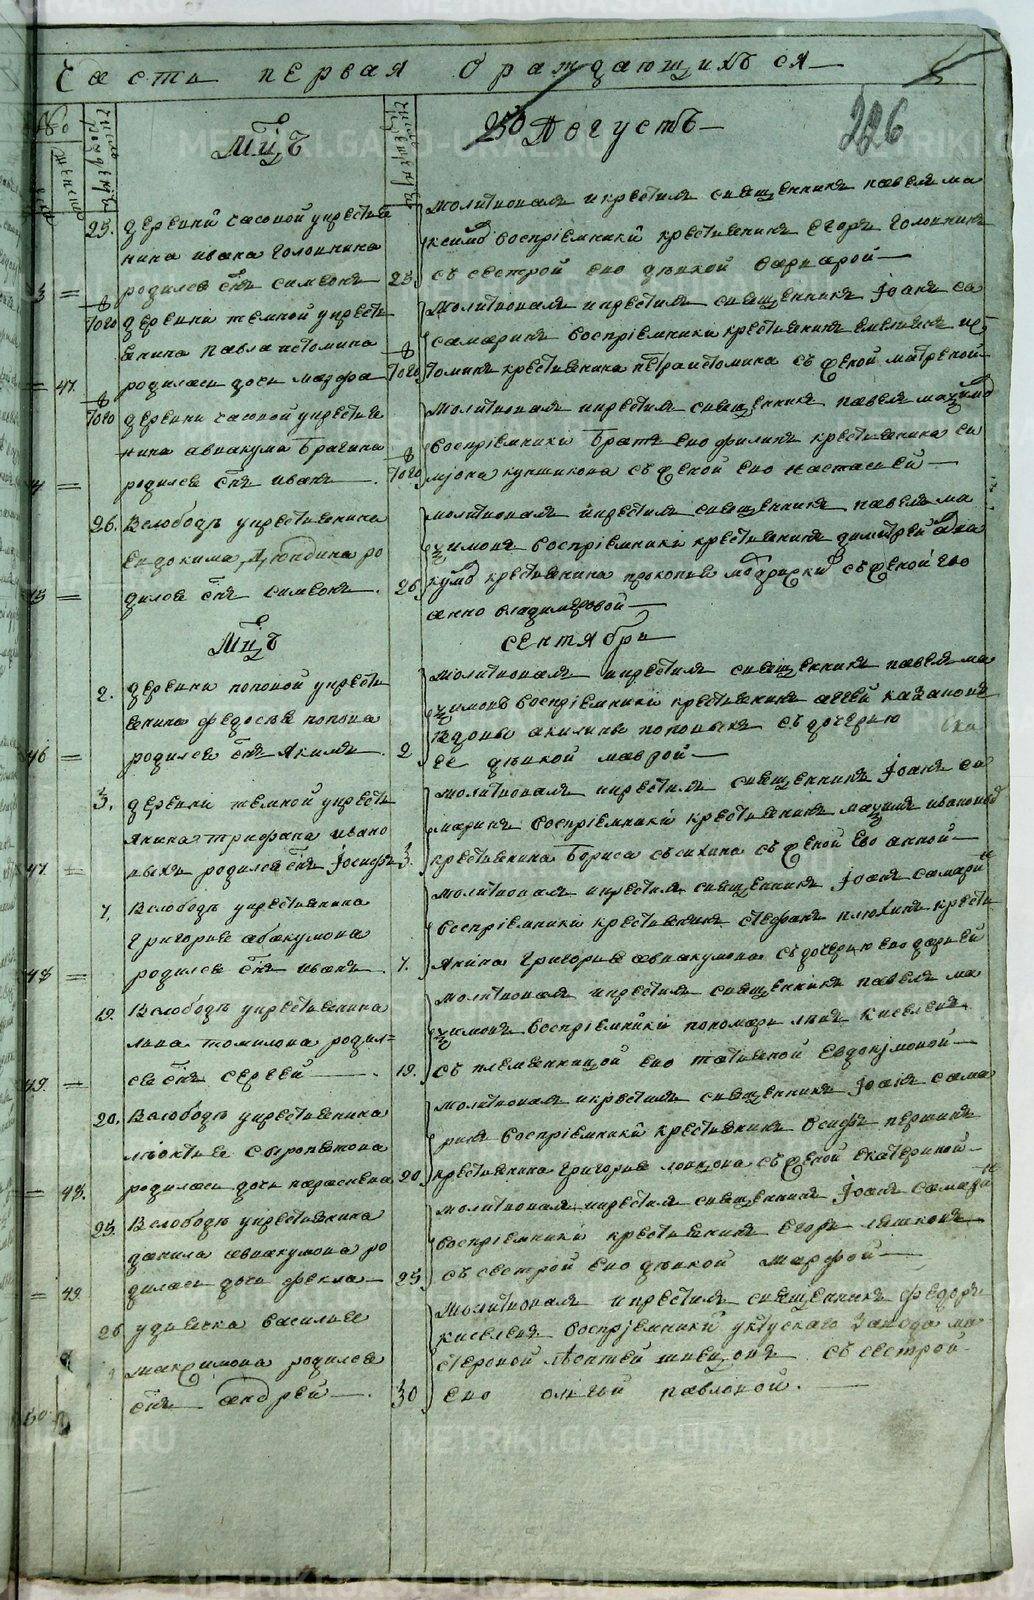 Часть первая о раждающихъся
226
Мцъ
Августъ
25. деревни часовой у крестья
нина ивана Головнина
3 = родился снъ симеонъ 25
молитвовалъ и крестилъ священникъ павелъ ма
ксимовъ воспріемники крестьянинъ Егоръ Головнинъ
съ сестрой ево дѣвкой варварой
того деревни темной у крестья
янина Павла истомина
= 47. родилась дочь марфа того
Молитвовалъ и крестилъ священникъ Іоанъ са
самаринъ воспріемники крестьянинъ
томинъ крестьянина петра истомина съ женой матреной
того деревни часовой у крестья
нина авакума Брагина
4 = родился снъ иванъ того
Молитвовалъ и крестилъ священникъ павелъ максимовъ
воспріемники братъ ево филипъ крестьянина си
міона съ женой ево настасьей
26. Вслободѣ у крестьянина
Евдокима ро
15 = дился снъ симеонъ 26
молитвовалъ и крестилъ священникъ павелъ ма
ксимовъ воспріемники крестьянинъ димитрей ава
кумовъ крестьянина прокопье съ женой его
анно владимеровой
Мцъ
сентября
2. деревни поповой у крестья
янина федосѣя попова
46 = родился снъ Якимъ 2
молитвовалъ и крестилъ священникъ павелъ ма
ксимовъ воспріемники крестьянинъ казаковъ
вдовы акилины поповыхъ съ дочерью
ее дѣвкой маврой
3. деревни темной у крестья
янина трифана ивано
47 = выхъ родился снъ Іосифъ 3.
молитвовалъ и крестилъ священникъ Іоанъ са
маринъ воспріемники крестьянинъ максимъ ивановъ
крестьянина Бориса сысихина съ женой ево анной
7. Вслободѣ у крестьянина
Григорья абакумова
48 = родился снъ иванъ 7.
молитвовалъ и крестилъ священникъ Іоанъ самаринъ
воспріемники крестьянинъ стефанъ плюхинъ крестья
янина Григорья авакумова съ дочерью ево дарьей
19. Вслободѣ у крестьянина
льва томилова родил=
49. = ся снъ сергей 19.
молитвовалъ и крестилъ священникъ павелъ ма
ксимовъ воспріемники пономарь левъ киселевъ
съ племянницой ево татьяной Евдокимовой
20. Вслободѣ у крестьянина
лѣонтья сыропятова
= 48. родилась дочь параскева 20
молитвовалъ и крестилъ священникъ Іоанъ сама
ринъ воспріемники крестьянинъ Осипъ першинъ
крестьянина Григорья съ женой екатериной
25. Вслободѣ у крестьянина
данила авакумова ро
= 49. дилась дочь фекла 25
молитвовалъ и крестилъ священникъ Іоанъ самаринъ
воспріемники крестьянинъ Егоръ
съ сестрой ево дѣвкой марфой
26 у дьячка василья
максимова родился
50 снъ андрей 30
Молитвовалъ и крестилъ священникъ федоръ
киселевъ воспріемники уктускаго завода ма
стеровой лѣонтей швецовъ съ сестрой
ево ольгой павловой.